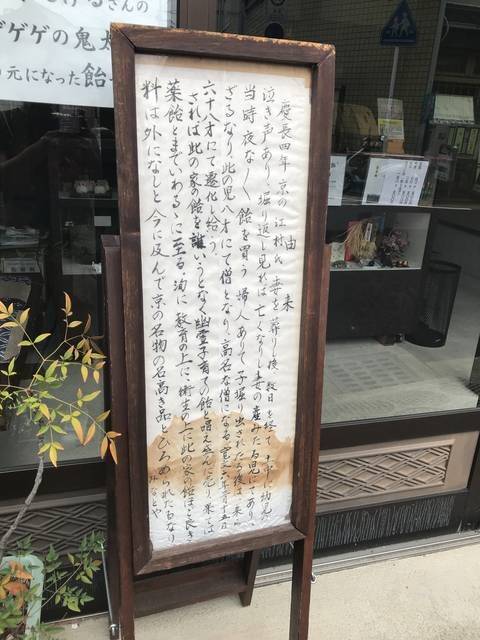 げるさんの
ゲゲゲの鬼太
元になった飴
由来
慶長四年京の江村氏妻を葬りし後、数日を経て土中に幼児の
泣き声あり、掘り返し見れば亡くなりし妻の産みたる児にてあり、
当時夜な〱飴を買う婦人ありて子掘り出されたる後は来ら
ざるなり、此の児八才にて僧となり、高名な僧になる寛文六年三月十五日
六十八才にて遷化し給う
されば此の家の飴を誰いうとなく幽霊子育ての飴と唱え盛んに売り果ては
薬飴とまでいわるゝに至る、洵に教育の上に衛生の上に此の家の飴ほど良き
料は外になしと今に及んで京の名物の名高き品とひろめられたるなり
みなとや